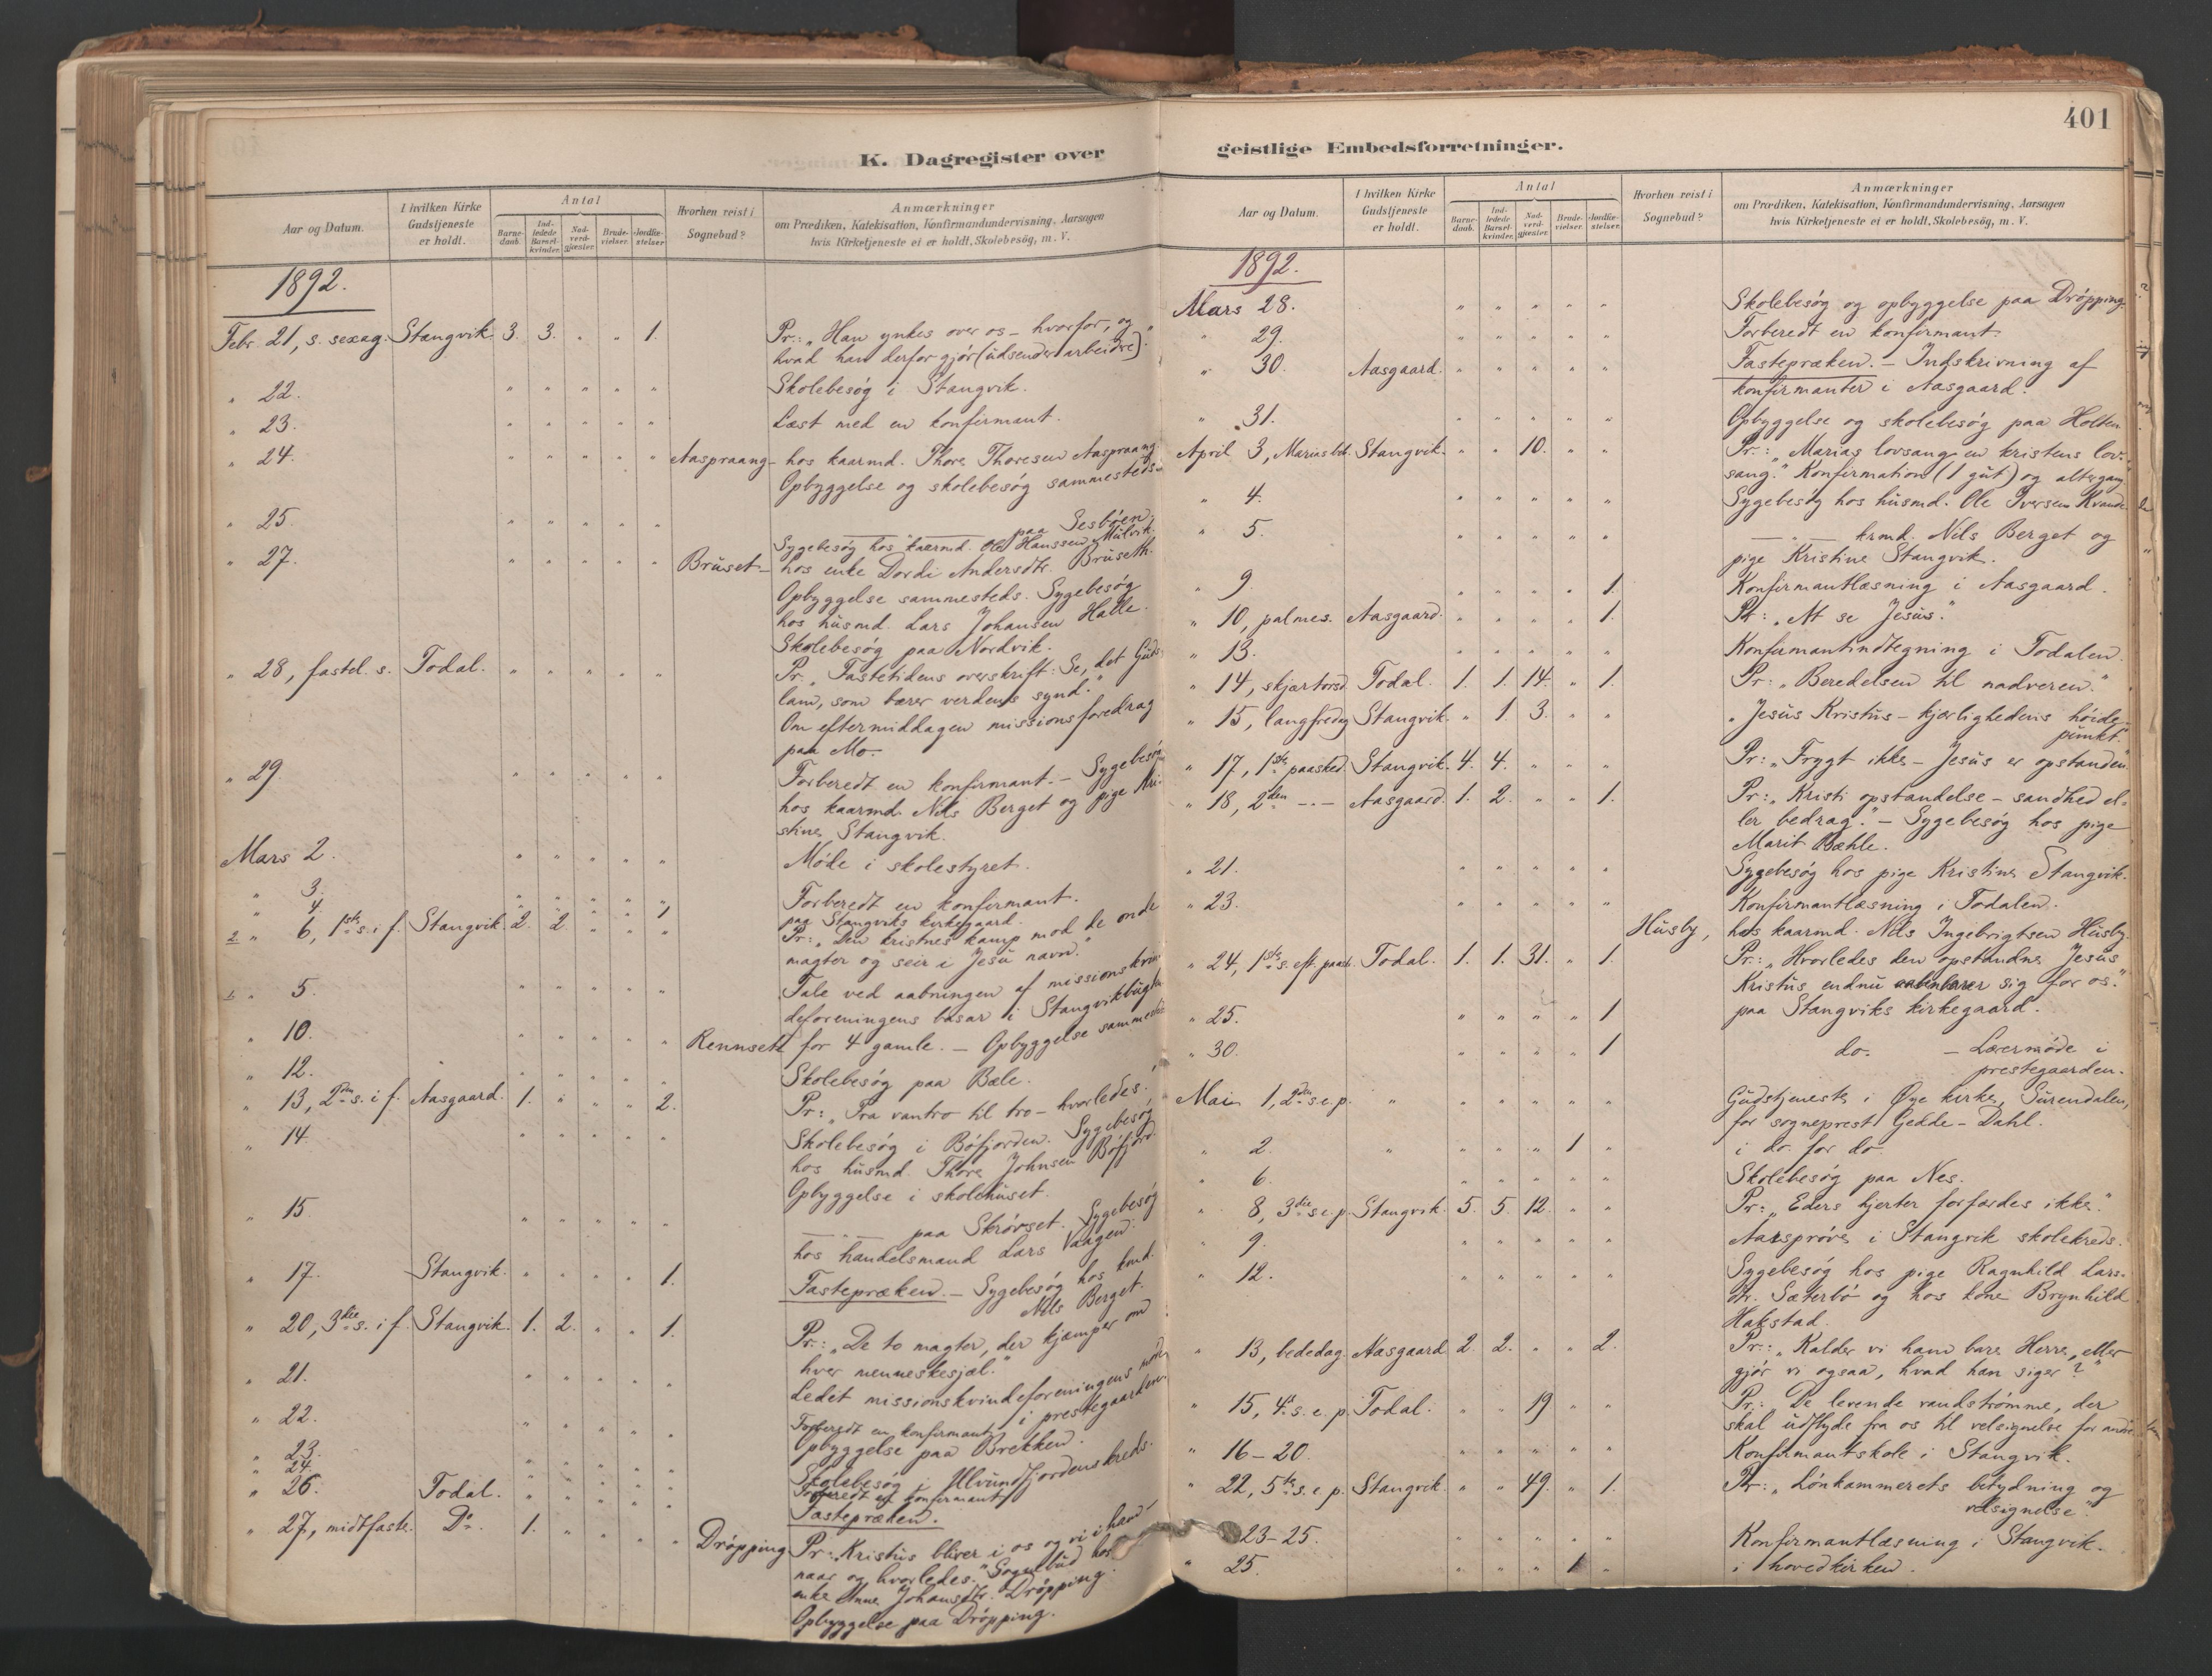 K. Dagregister over
Aar og Datum.
I hvilken Kirke Gudstjeneste er holdt.
Antal
Barnedaab.
Indledede Barselkvinder.
Nadverdgjæster.
Brudevielser.
Jordfæstelser
Hvorhen reist i Sognebud?
Anmærkninger
om Prædiken, Katekisation, Konfirmandundervisning, Aarsagen
hvis Kirketjeneste ei er holdt, Skolebesög, m. V.
1892.
Febr. 21, s. sexag. Stangvik. 3. 3. " " 1. Pr.: „Han ynkes over os – hvorfor, og
hvad han derfor gjör (udsender arbeidre)."
" 22. " " " " " Skolebesög i Stangvik.
" 23. " " " " " Læst med en konfirmant.
" 24. " " " " " Aaspraang – hos kaarmd. Thore Thoresen Aaspraang
Opbyggelse og skolebesög sammesteds.
" 25. " " " " " — " — paa Sesböen.
Sygebesög hos kaarmd. Ole Hanssen Mulvik.
" 27. " " " " " Bruset – hos enke Dordi Andersdtr. Bruseth.
Opbyggelse sammesteds. Sygebesög
hos husmd. Lars Johansen Halle.
Skolebesög paa Nordvik.
" 28, fastel. s. Todal. " " " " " Pr. „Fastetidens overskrift: Se, det Guds
lam, som bærer verdens synd."
Om eftermiddagen missionsforedrag
paa Mo.
" 29. " " " " " Forberedt en konfirmant. – Sygebesög
hos kaarmd. Nils Berget og pige Kri-
stine Stangvik.
Mars 2. " " " " " Möde i skolestyret.
" 3. " " " " " Forberedt en konfirmant.
" 4. " " " " 1 paa Stangviks kirkegaard.
2. " 6, 1ste s. i f. Stangvik. 2. 2 " " " Pr.: „Den kristnes kamp mod de onde
magter og seir i Jesu navn."
1. " 5. " " " " " Tale ved aabningen af missionskvin-
deforeningens basar i Stangvikbugten
" 10. " " " " " Rennseth for 4 gamle. – Opbyggelse sammesteds
" 12. " " " " " Skolebesög paa Bæle.
" 13, 2den s. i f. Aasgaard. 1. " " " 2. Pr.: „Fra vantro til tro – hvorledes!"
" 14. " " " " " Skolebesög i Böfjorden. Sygebesög
hos husmd. Thore Johnsen Böfjord.
Opbyggelse i skolehuset.
" 15. " " " " " — " — paa Skrövset. Sygebesög
hos handelsmand Lars Vaagen.
" 17. Stangvik. " " " " 1. Fastepræken. – Sygebesög hos kmd.
Nils Berget.
" 20, 3die s. i f. Stangvik. 1. 2. " " 1. Pr.: „De to magter, der kjæmper om
hver menneskesjæl."
" 21. " " " " " Ledet missionskvindeforeningens möde
i prestegaarden.
" 22. " " " " " Forberedt en konfirmant.
" 23. Opbyggelse paa Brekken.
" 24. Skolebesög i Ulvundfjordens kreds.
Forberedt en konfirmant
" 26. Todal. " " " " " Fastepræken.
" 27, midtfaste. Do. 1. " " " " Dröpping. Pr: „Kristus bliver i os og vi i ham –
naar og hvorledes." Sognebud hos
enke Anne Johansdtr. Dröpping.
Opbyggelse paa Dröpping.
401
geistlige Embedsforretninger.
Aar og Datum.
I hvilken Kirke Gudstjeneste er holdt.
Antal
Barnedaab.
Indledede Barselkvinder.
Nadverdgjæster.
Brudevielser.
Jordfæstelser.
Hvorhen reist i Sognebud?
Anmærkninger
om Prædiken, Katekisation, Konfirmandundervisning, Aarsagen
hvis Kirketjeneste ei er holdt, Skolebesög, m. V.
1892.
Mars 28. " " " " " Skolebesög og opbyggelse paa Dröpping.
" 29. " " " " " Forberedt en konfirmant.
" 30. Aasgaard. " " " " " Fastepræken. – Indskrivning af
konfirmanter i Aasgaard.
" 31. " " " " " Opbyggelse og skolebesög paa Holten
April 3, Marias bd. Stangvik. " " 10. " " Pr.: „Marias lovsang en kristens lov-
sang." Konfirmation (1 gut) og altergang
" 4. " " " " " Sygebesög hos husmd. Ole Iversen Kvande
" 5. " " " " " — " — krmd. Nils Berget og
pige Kristine Stangvik.
" 9. " " " " 1. Konfirmantlæsning i Aasgaard.
" 10, palmes. Aasgaard. " " " " 1. Pr.: „At se Jesus."
" 13. " " " " " Konfirmantindtegning i Todalen.
" 14, skjærtorsd. Todal. 1. 1. 14. " 1. Pr.: „Beredelsen til nadveren."
" 15, langfredag Stangvik. " 1. 3. " " „Jesus Kristus – kjærlighedens höide-
punkt."
" 17, 1ste paasked. Stangvik. 4. 4. " " " Pr: „Frygt ikke – Jesus er opstanden."
" 18, 2den – " – Aasgaard. 1. 2. " " 1. Pr: „Kristi opstandelse – sandhed el-
ler bedrag." – Sygebesög hos pige
Marit Bæhle.
" 21. " " " " " Sygebesög hos pige Kristine Stangvik.
" 23. " " " " " Konfirmantlæsning i Todalen.
Husby, hos kaarmd. Nils Ingebrigtsen Husby.
" 24, 1ste s. eft. paask. Todal. 1. 1. 31. " 1. Pr.: „Hvorledes den opstandne Jesus
Kristus endnu aabenbarer sig for os."
" 25. " " " " 1 paa Stangviks kirkegaard.
" 30. " " " " 1 do. – Lærermöde i
prestegaarden.
Mai 1, 2den s. e. p. " " " " " " Gudstjeneste i Øye kirke, Surendalen,
for sogneprest Gedde-Dahl.
" 2. " " " " 1 " i do. for do.
" 6. " " " " " Skolebesög paa Nes.
" 8, 3die s. e. p. Stangvik. 5. 5. 12. " " Pr: „Eders hjerter forfærdes ikke."
" 9. " " " " " Aarspröve i Stangvik skolekreds.
" 12. " " " " " Sygebesög hos pige Ragnhild Lars-
dtr. Sæterbö og hos kone Brynhild
Hakstad.
" 13, bededag. Aasgaard. 2. 2. " " 2. Pr.: „Kalder vi ham bare Herre, eller
gjör vi ogsaa, hvad han siger?"
" 15, 4. s. e. p. Todal. " " 19 " " Pr.: „De levende vandströmme, der
skal udflyde fra os til velsignelse for andre
" 16–20. " " " " " Konfirmantskole i Stangvik.
" 22, 5te s. e. p. Stangvik. " " 49. " 1. Pr: „Lönkammerets betydning og
velsignelse."
23–25. " " " " " Konfirmantlæsning i Stangvik.
" 25. " " " 1 " i hovedkirken.